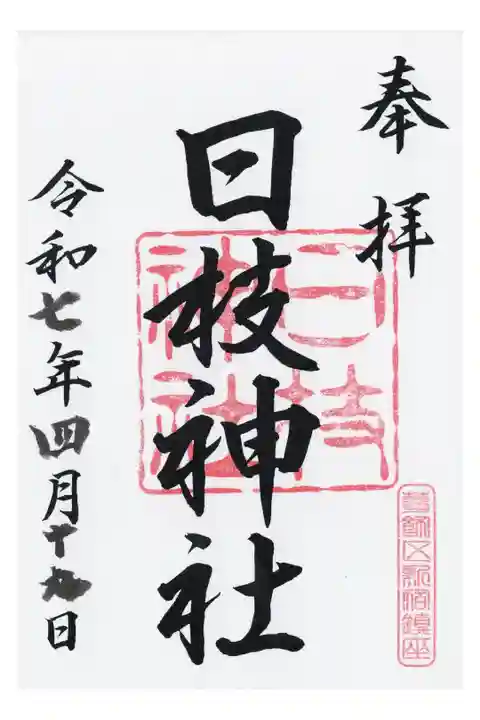 奉拝
日枝神社
日枝
神社
葛飾区新宿鎮座
令和七年四月十九日